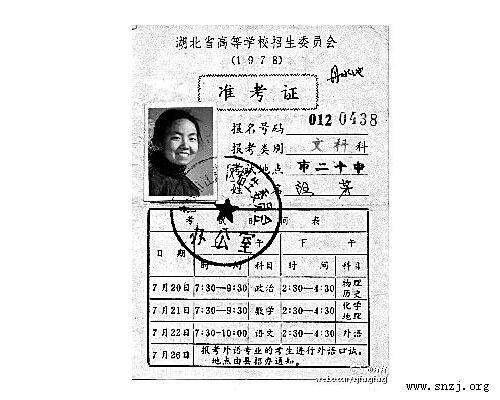 湖北省高等学校招生委员会
(1978)
准考证
报名号码 012 0438
报考类别 文科科
考试地点 市二十中
姓名
考试时间表
日期 上午 下午
时间 科目 时间 科目
7月20日 7:30—9:30 政治 2:30—4:30 物理 历史
7月21日 7:30—9:30 数学 2:30—4:30 化学 地理
7月22日 7:30-10:00 语文 2:30—4:30 外语
7月26日 报考外语专业的考生进行外语口试。
地点由县招办通知。
办公室
www.snzj.org